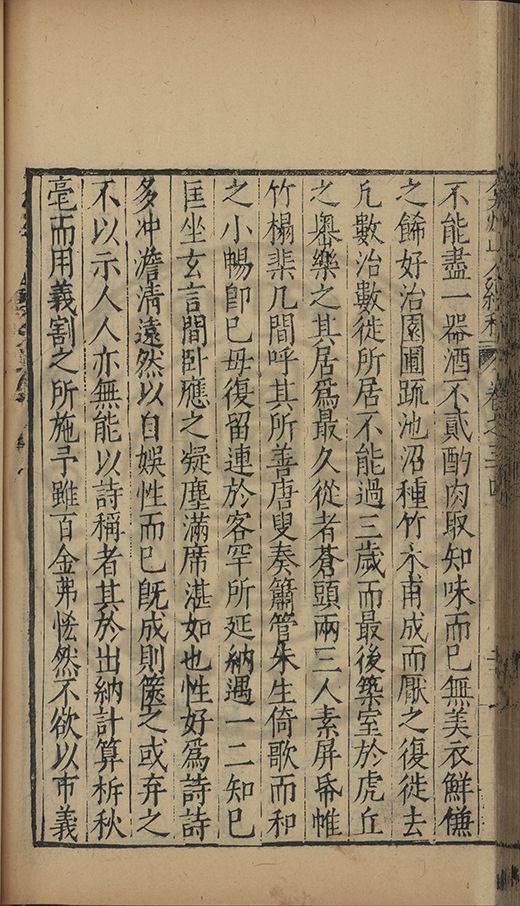 弇州山人續稿 卷之三四
不能盡一器酒不貳酌肉取知味而已無美衣鮮傔
之餙好治園圃䟽池沼種竹木甫成而厭之復徙去
凢數治數徙所居不能過三歲而最後築室於虎丘
之嶴樂之其居爲最久從者蒼頭兩三人素屏帋帷
竹榻棐几間呼其所善唐叟奏簫管朱生倚歌而和
之小暢卽已毋復留連於客罕所延納遇一二知已
匡坐玄言間卧應之凝塵滿席湛如也性好爲詩詩
多冲澹清遠然以自娛性而已旣成則篋之或弃之
不以示人人亦無能以詩稱者其於出納計算析秋
毫而用義割之所施予雖百金弗恡然不欲以市義